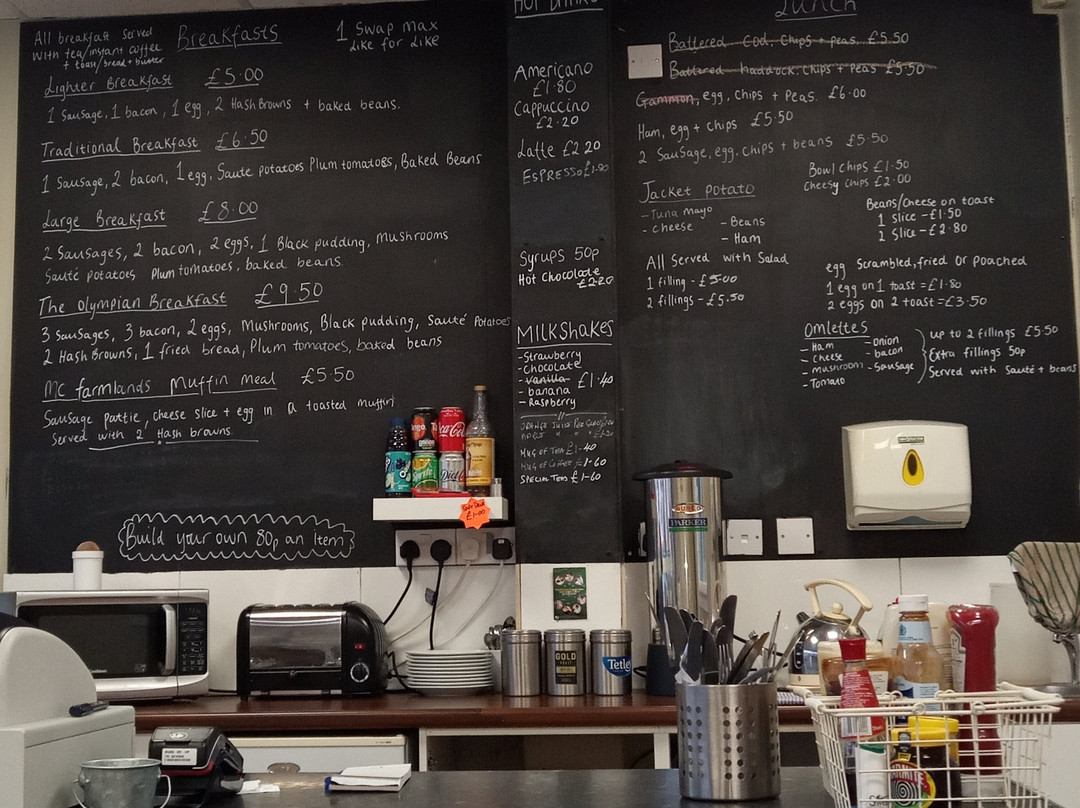 All breakfast served
with tea/instant coffee
+ toast/bread + butter
Breakfasts
1 Swap max
like for like
Lighter Breakfast £5.00
1 Sausage, 1 bacon, 1 egg, 2 Hash Browns + baked beans.
Traditional Breakfast £6.50
1 Sausage, 2 bacon, 1 egg, Saute potatoes Plum tomatoes, Baked Beans
Large Breakfast £8.00
2 Sausages, 2 bacon, 2 eggs, 1 Black pudding, Mushrooms
Sauté potatoes Plum tomatoes, baked beans.
The Olympian Breakfast £9.50
3 Sausages, 3 bacon, 2 eggs, Mushrooms, Black pudding, Sauté Potatoes
2 Hash Browns, 1 fried bread, Plum tomatoes, baked beans
Mc farmlands Muffin meal £5.50
Sausage pattie, cheese slice + egg in a toasted muffin
Served with 2 Hash browns.
Build your own 80p an Item
Hot Drinks
Americano
£1.80
Cappuccino
£2.20
Latte £2.20
Espresso £1.80
Syrups 50p
Hot Chocolate
£2.20
Milkshakes
- Strawberry
- Chocolate
- Vanilla £1.40
- banana
- Raspberry
Mug of Tea £1-40
Mug of Coffee £1-60
Special Teas £1-60
Lunch
Battered Cod, Chips + peas £5.50
Battered haddock, chips + peas £5.50
Gammon, egg, chips + peas. £6.00
Ham, egg + chips £5.50
2 Sausage, egg, chips + beans £5.50
Bowl chips £1.50
Cheesy chips £2.00
Jacket potato
- Tuna mayo
- Cheese
- Beans
- Ham
All Served with Salad
1 filling - £5.00
2 fillings - £5.50
Beans/Cheese on toast
1 slice - £1.50
2 slice - £2.80
egg Scrambled, fried or poached
1 egg on 1 toast = £1.80
2 eggs on 2 toast = £3.50
Omlettes
- Ham
- Cheese
- mushroom
- Tomato
- onion
- bacon
- Sausage
up to 2 fillings £5.50
Extra fillings 50p
Served with Sauté + beans
Coca-Cola
Sprite
Diet
£1.00
PARKER
GOLD
Tetley